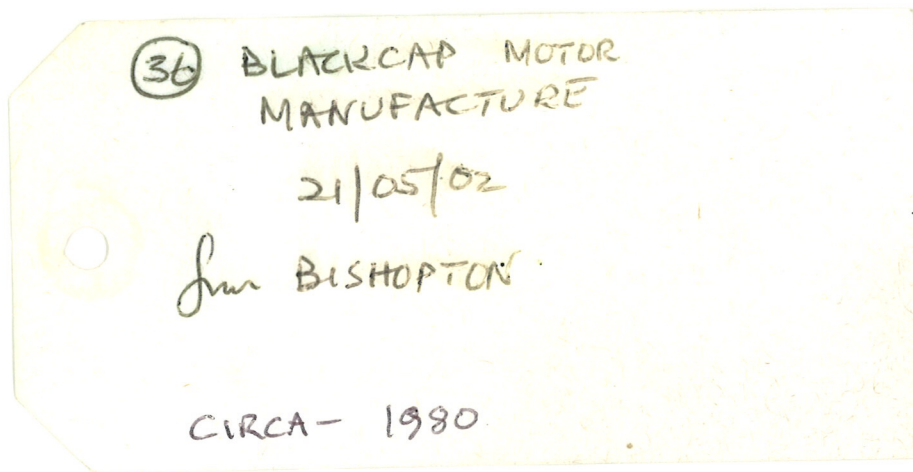 36 BLACKCAP MOTOR
MANUFACTURE
21/05/02
from BISHOPTON
CIRCA- 1980